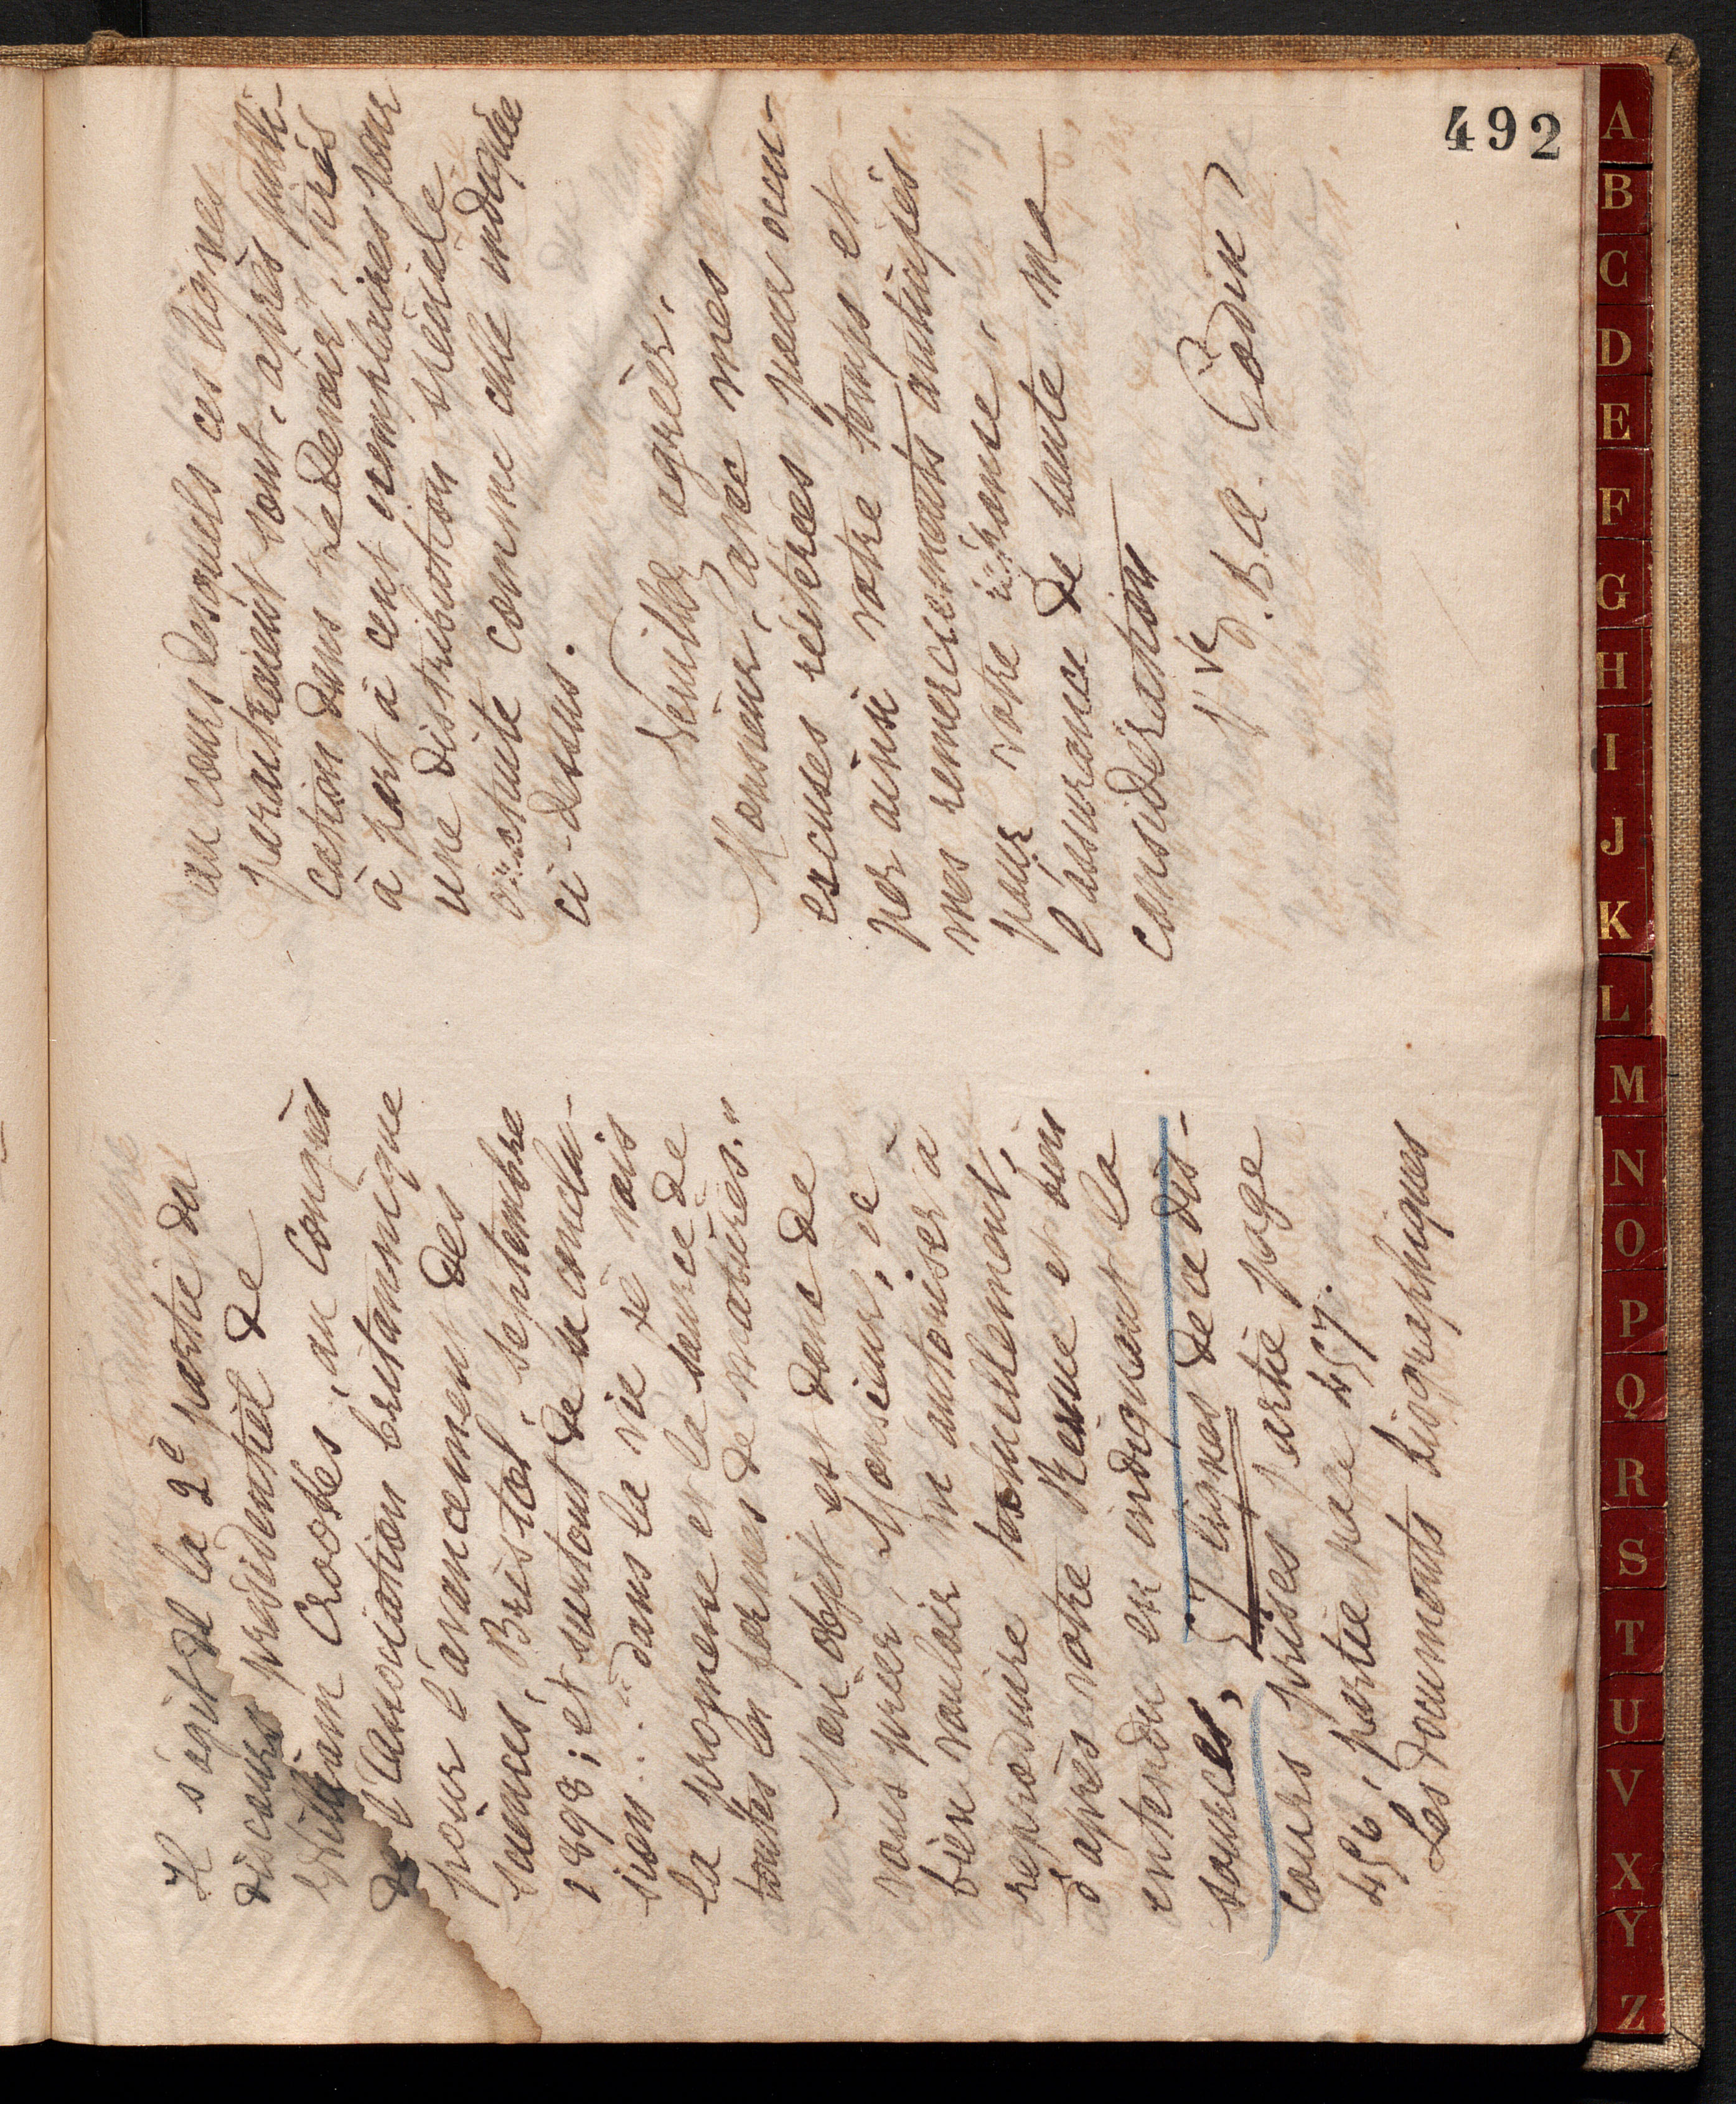 492
Il s'agit de la 2e partie du
discours présidentiel de
William Crookes, au Congrès
de l'association britannique
pour l'avancement des
sciences, Bristol, septembre
1898; et surtout de sa conclu-
sion: "dans la vie je vois
la promesse et la source de
toutes les formes de matières."
Mon objet est donc de
vous prier, Monsieur, de
bien vouloir m'autoriser à
reproduire textuellement,
d'après votre Revue et bien
entendu en indiquant la
source, 57 lignes de ce dis-
cours prises partie page
456, partie page 457.
Les documents biographiques
au cours desquels ces lignes
paraîtraient sont, après publi-
cation dans "le Devoir", tirés
à part à cent exemplaires pour
une distribution spéciale
gratuite comme celle indiquée
ci-dessus.
Veuillez agréer,
Monsieur, avec mes
excuses réitérées pour occu-
per ainsi votre temps et
mes remerciements anticipés
pour votre réponse, ma
l'assurance de toute ma
considération
Vve J. B. A. Godin
A
B
C
D
E
F
G
H
I
J
K
L
M
N
O
P
Q
R
S
T
U
V
X
Y
Z